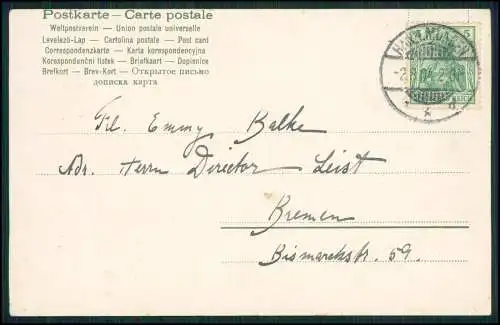 Postkarte — Carte postale
Weltpostverein — Union postale universelle
Levelező-Lap — Cartolina postale — Post card
Correspondenzkarte — Karta korespondencyjna
Korespondenční lístek — Briefkaart — Dopisnice
Brefkort — Brev-Kort — Открытое письмо
дописна карта
5
Frl. Emmy Balke
Adr. Herrn Director Leist
Bremen
Bismarckstr. 59.